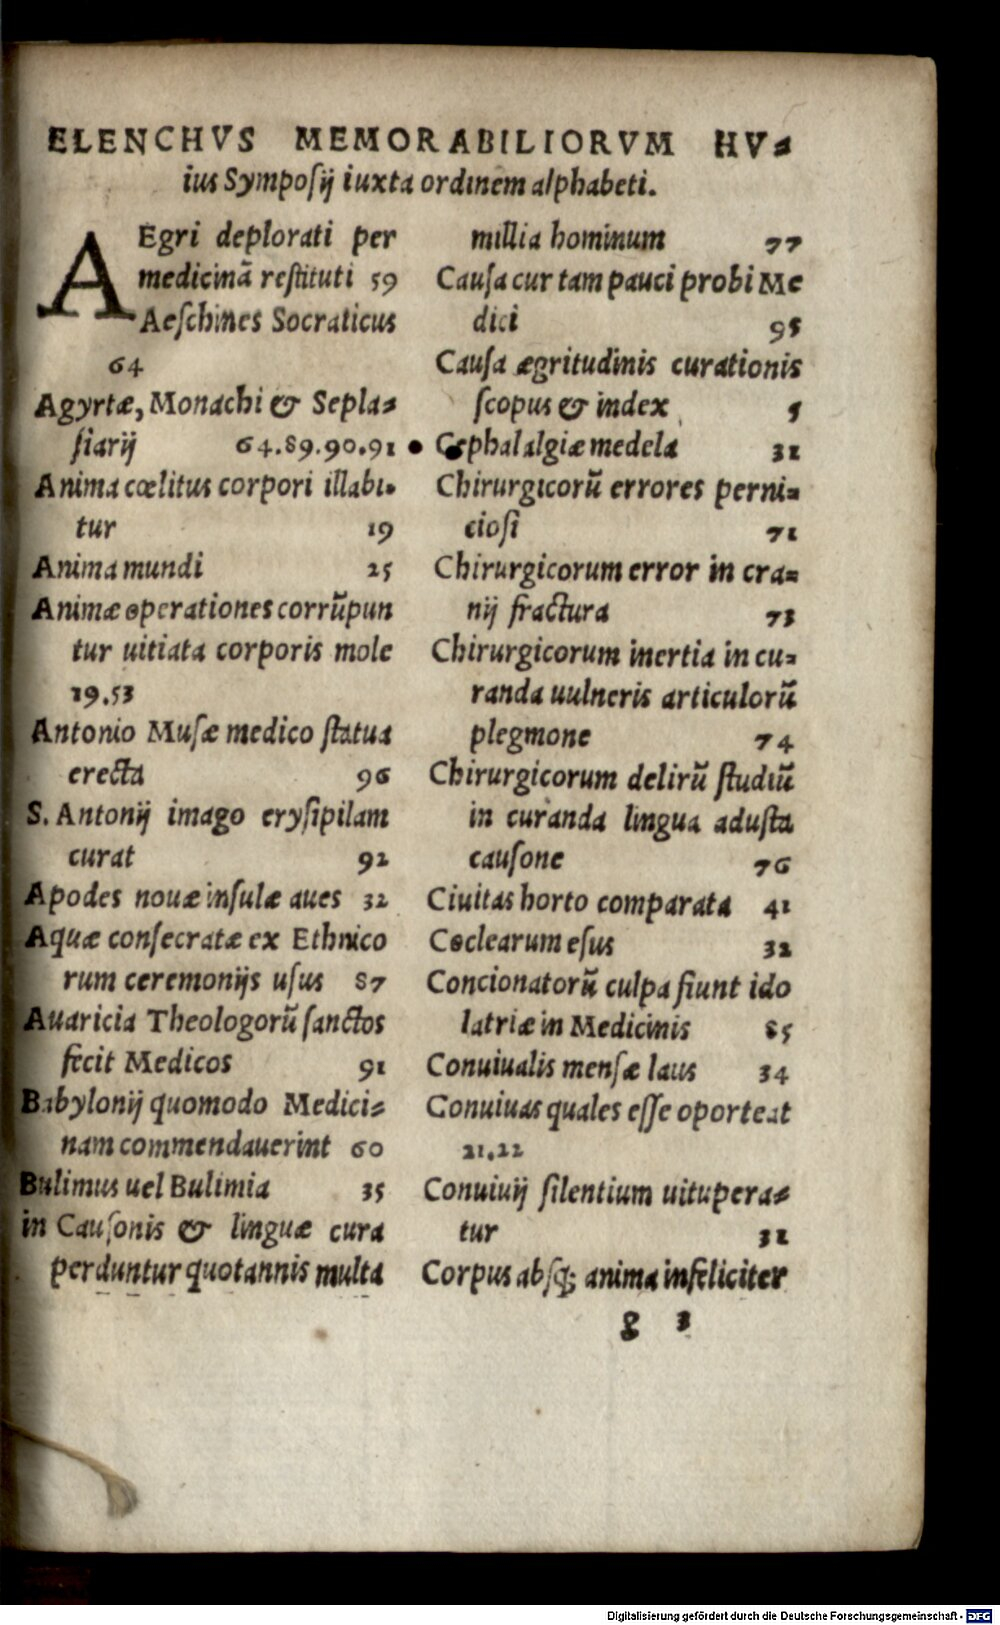 ELENCHVS MEMORABILIORVM HV-
ius Symposij iuxta ordinem alphabeti.
AEgri deplorati per
medicinā restituti 59
Aeschines Socraticus
64
Agyrtæ, Monachi & Sepla-
siarij 64.89.90.91
Anima cœlitus corpori illabi-
tur 19
Anima mundi 25
Animæ operationes corrūpun
tur uitiata corporis mole
19.53
Antonio Musæ medico statua
erecta 96
S. Antonij imago erysipilam
curat 92
Apodes nouæ insulæ aues 32
Aquæ consecratæ ex Ethnico
rum ceremonijs usus 87
Auaricia Theologorū sanctos
fecit Medicos 91
Babylonij quomodo Medici-
nam commendauerint 60
Bulimus uel Bulimia 35
in Causonis & linguæ cura
perduntur quotannis multa
millia hominum 77
Causa cur tam pauci probi Me
dici 95
Causa ægritudinis curationis
scopus & index 5
Cephalalgiæ medela 32
Chirurgicorū errores perni-
ciosi 71
Chirurgicorum error in cra-
nij fractura 73
Chirurgicorum inertia in cu-
randa uulneris articulorū
plegmone 74
Chirurgicorum delirū studiū
in curanda lingua adusta
causone 76
Ciuitas horto comparata 41
Coclearum esus 32
Concionatorū culpa fiunt ido
latriæ in Medicinis 85
Conuiualis mensæ laus 34
Conuiuas quales esse oporteat
21.22
Conuiuij silentium uitupera-
tur 32
Corpus absq; anima infeliciter
g 3
Digitalisierung gefördert durch die Deutsche Forschungsgemeinschaft - DFG